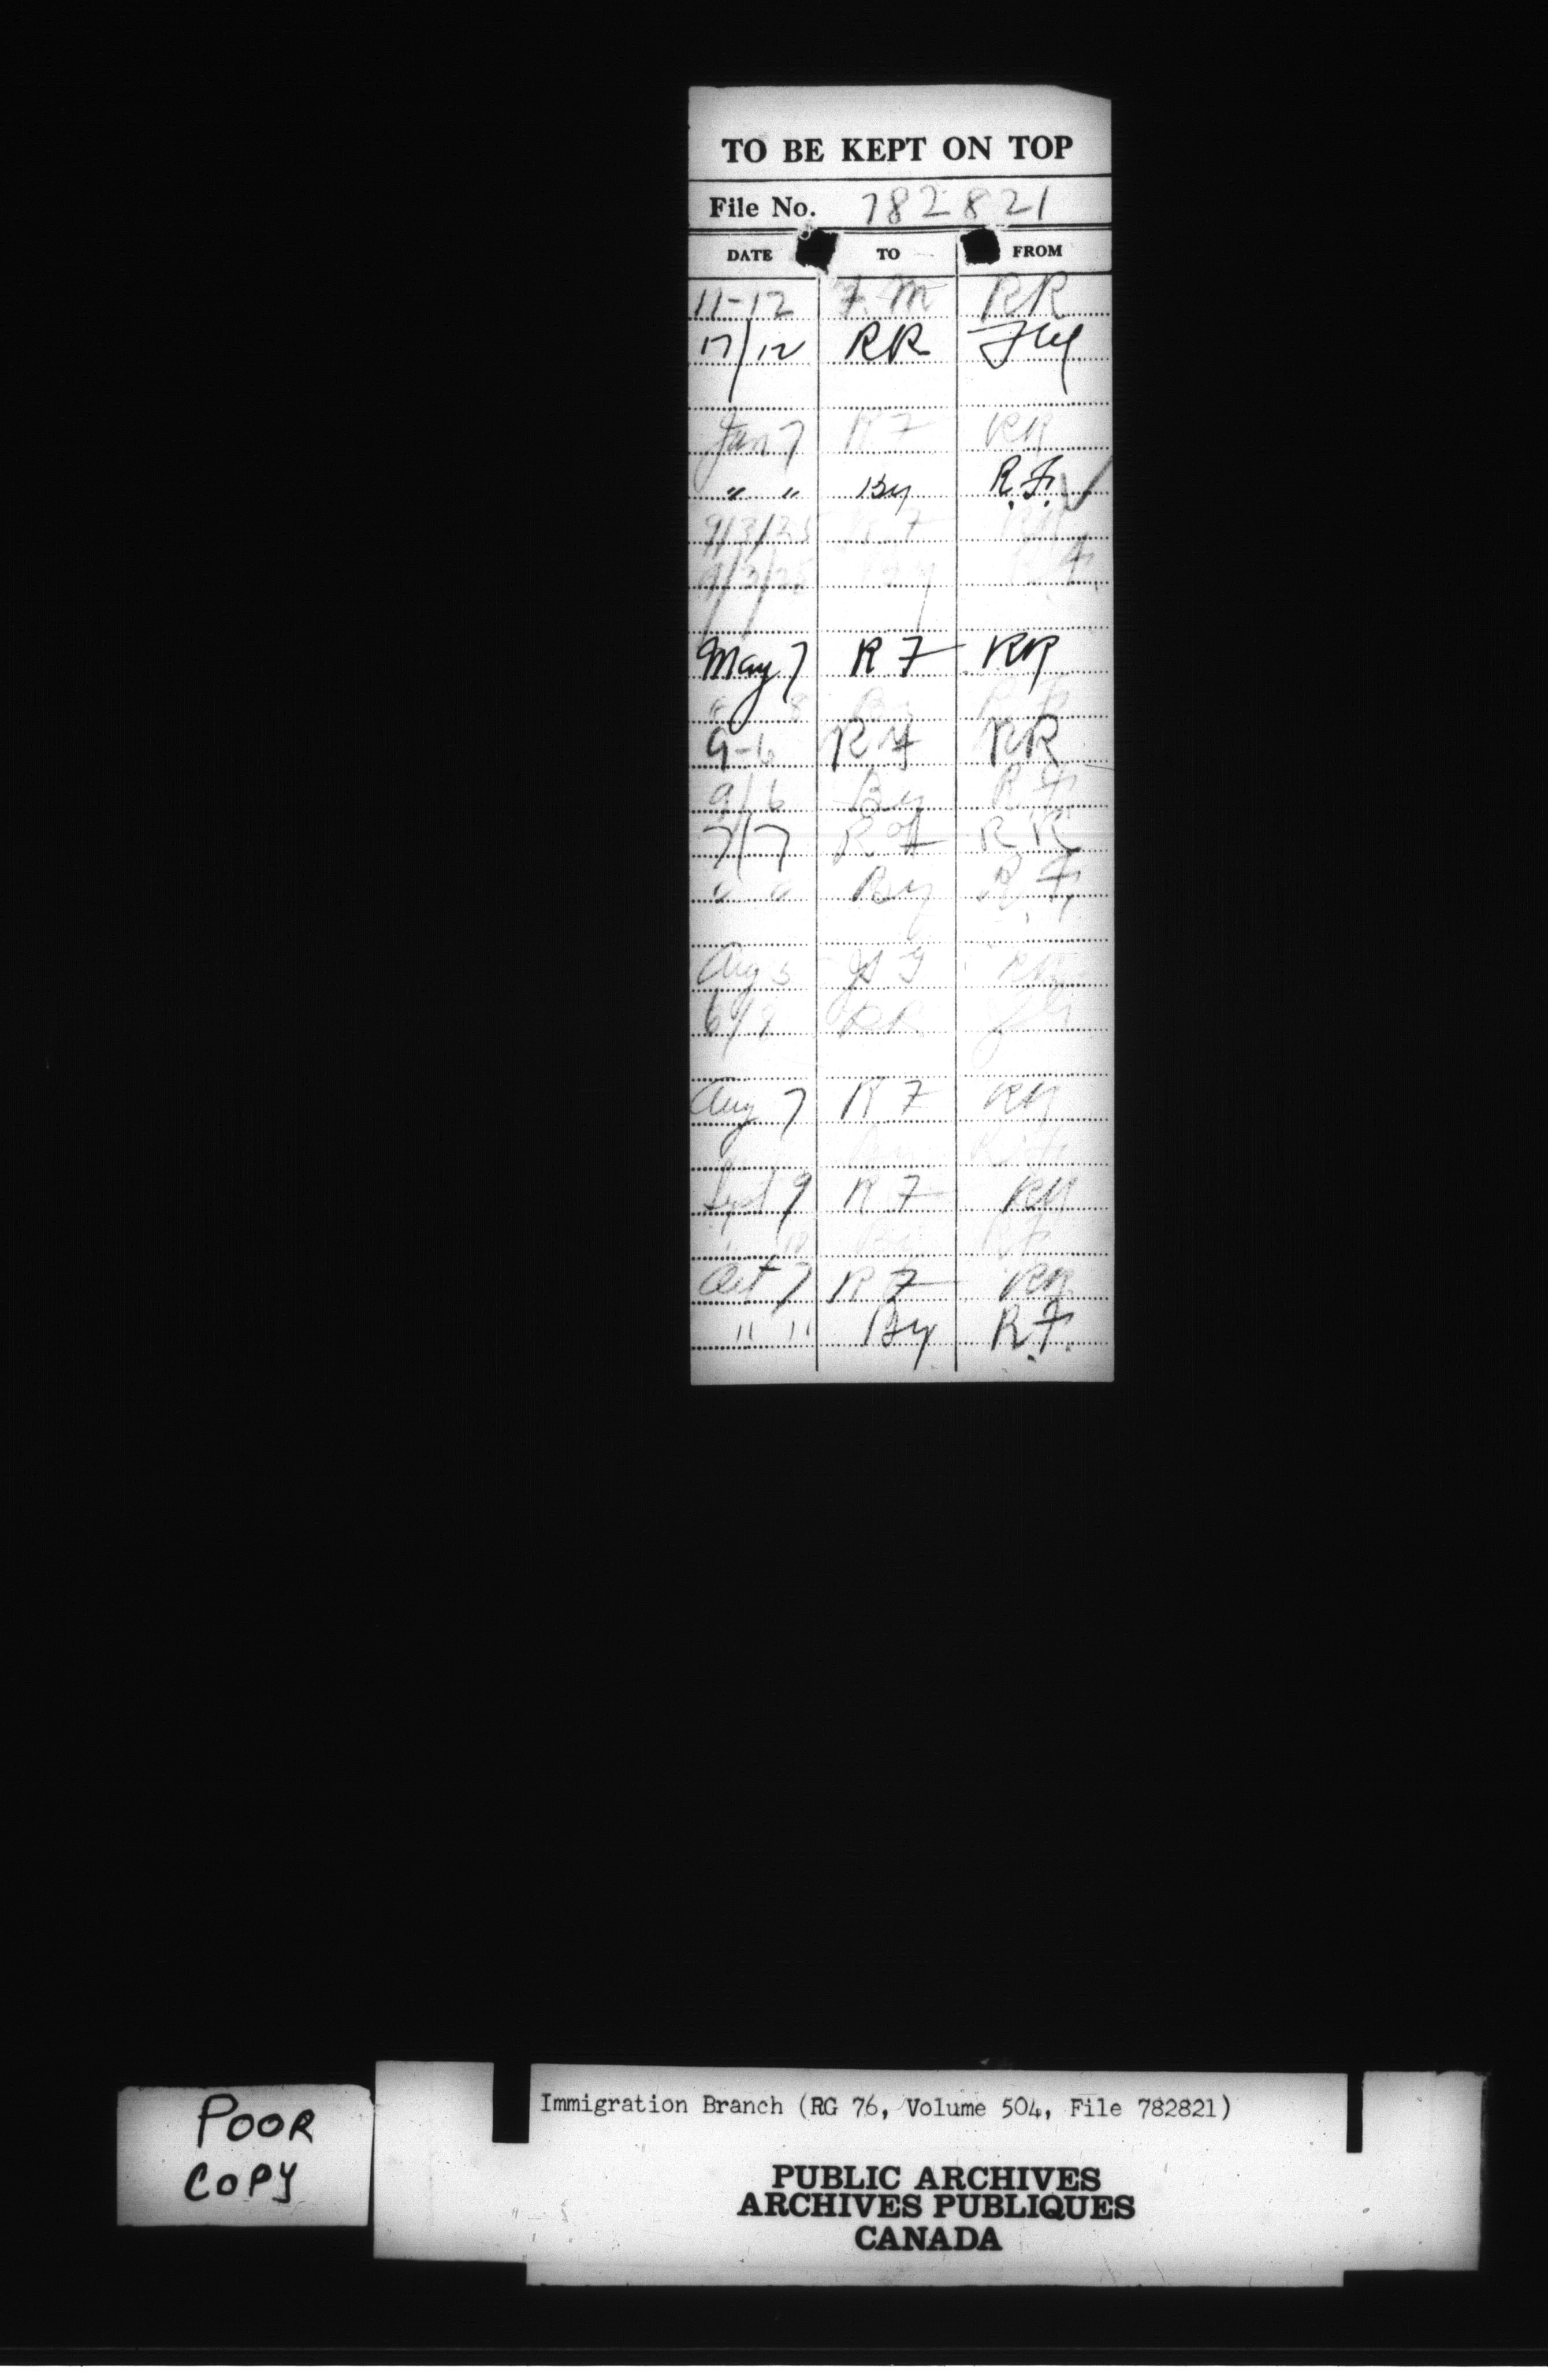 TO BE KEPT ON TOP
File No. 782821
DATE TO FROM
11-12 F.M RR
17/12 RR
Jan 7 R F RR
" " By R.F. ✓
9/3/25 R F RR
9/3/25 By R.F.
May 7 R F RR
" 8 By R F
9-6 R F RR
9/6 By R F.
7/7 R F RR
" " By R.F.
Aug 5 RR
6/8 RR
Aug 7 R F RR
By R.F.
Sept 9 R F RR
" 10 By R F
Oct 7 R F RR
" " By R.F.
POOR
COPY
Immigration Branch (RG 76, Volume 504, File 782821)
PUBLIC ARCHIVES
ARCHIVES PUBLIQUES
CANADA